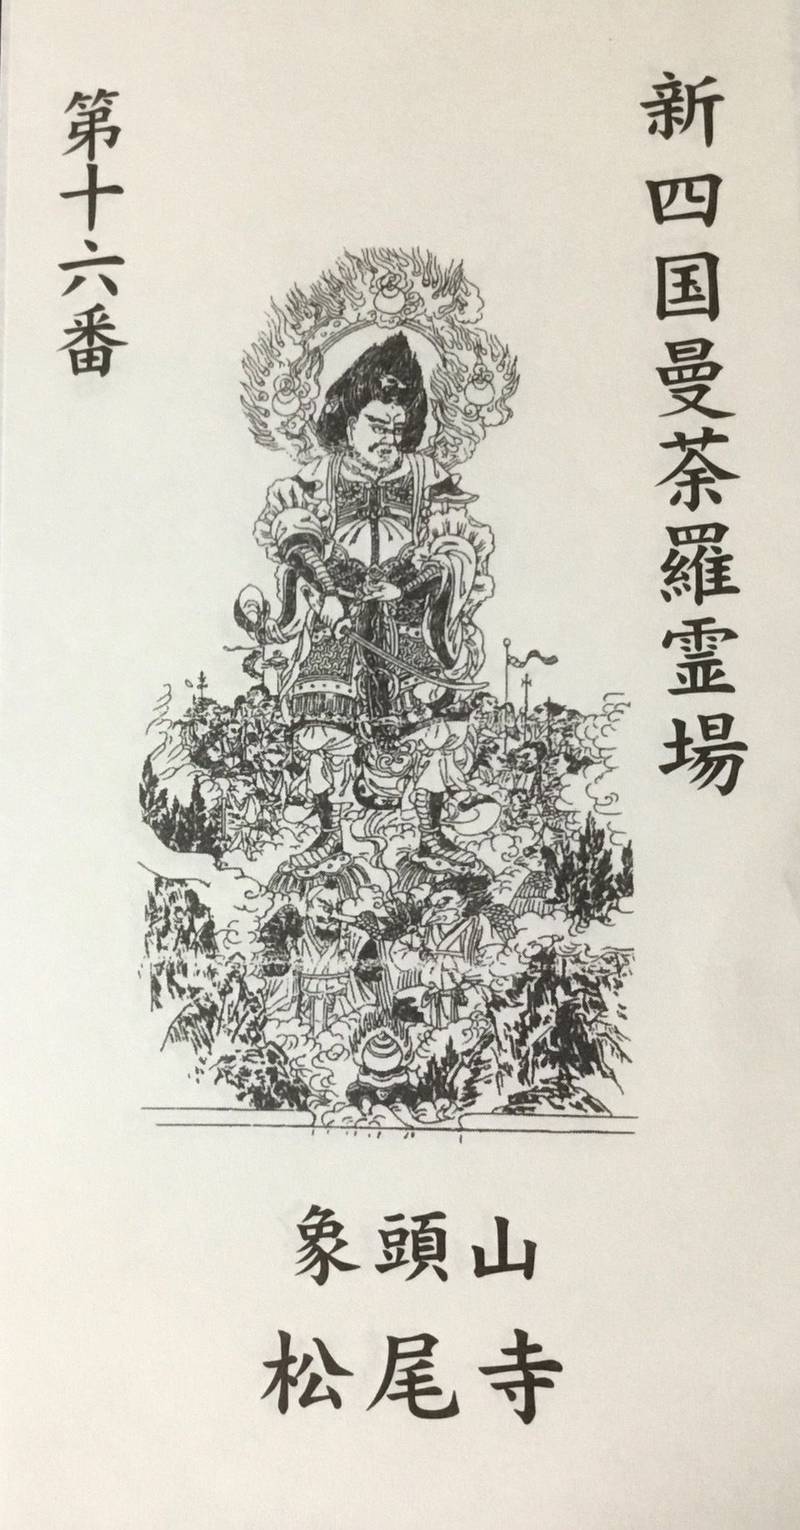 新四国曼荼羅霊場
第十六番
象頭山
松尾寺